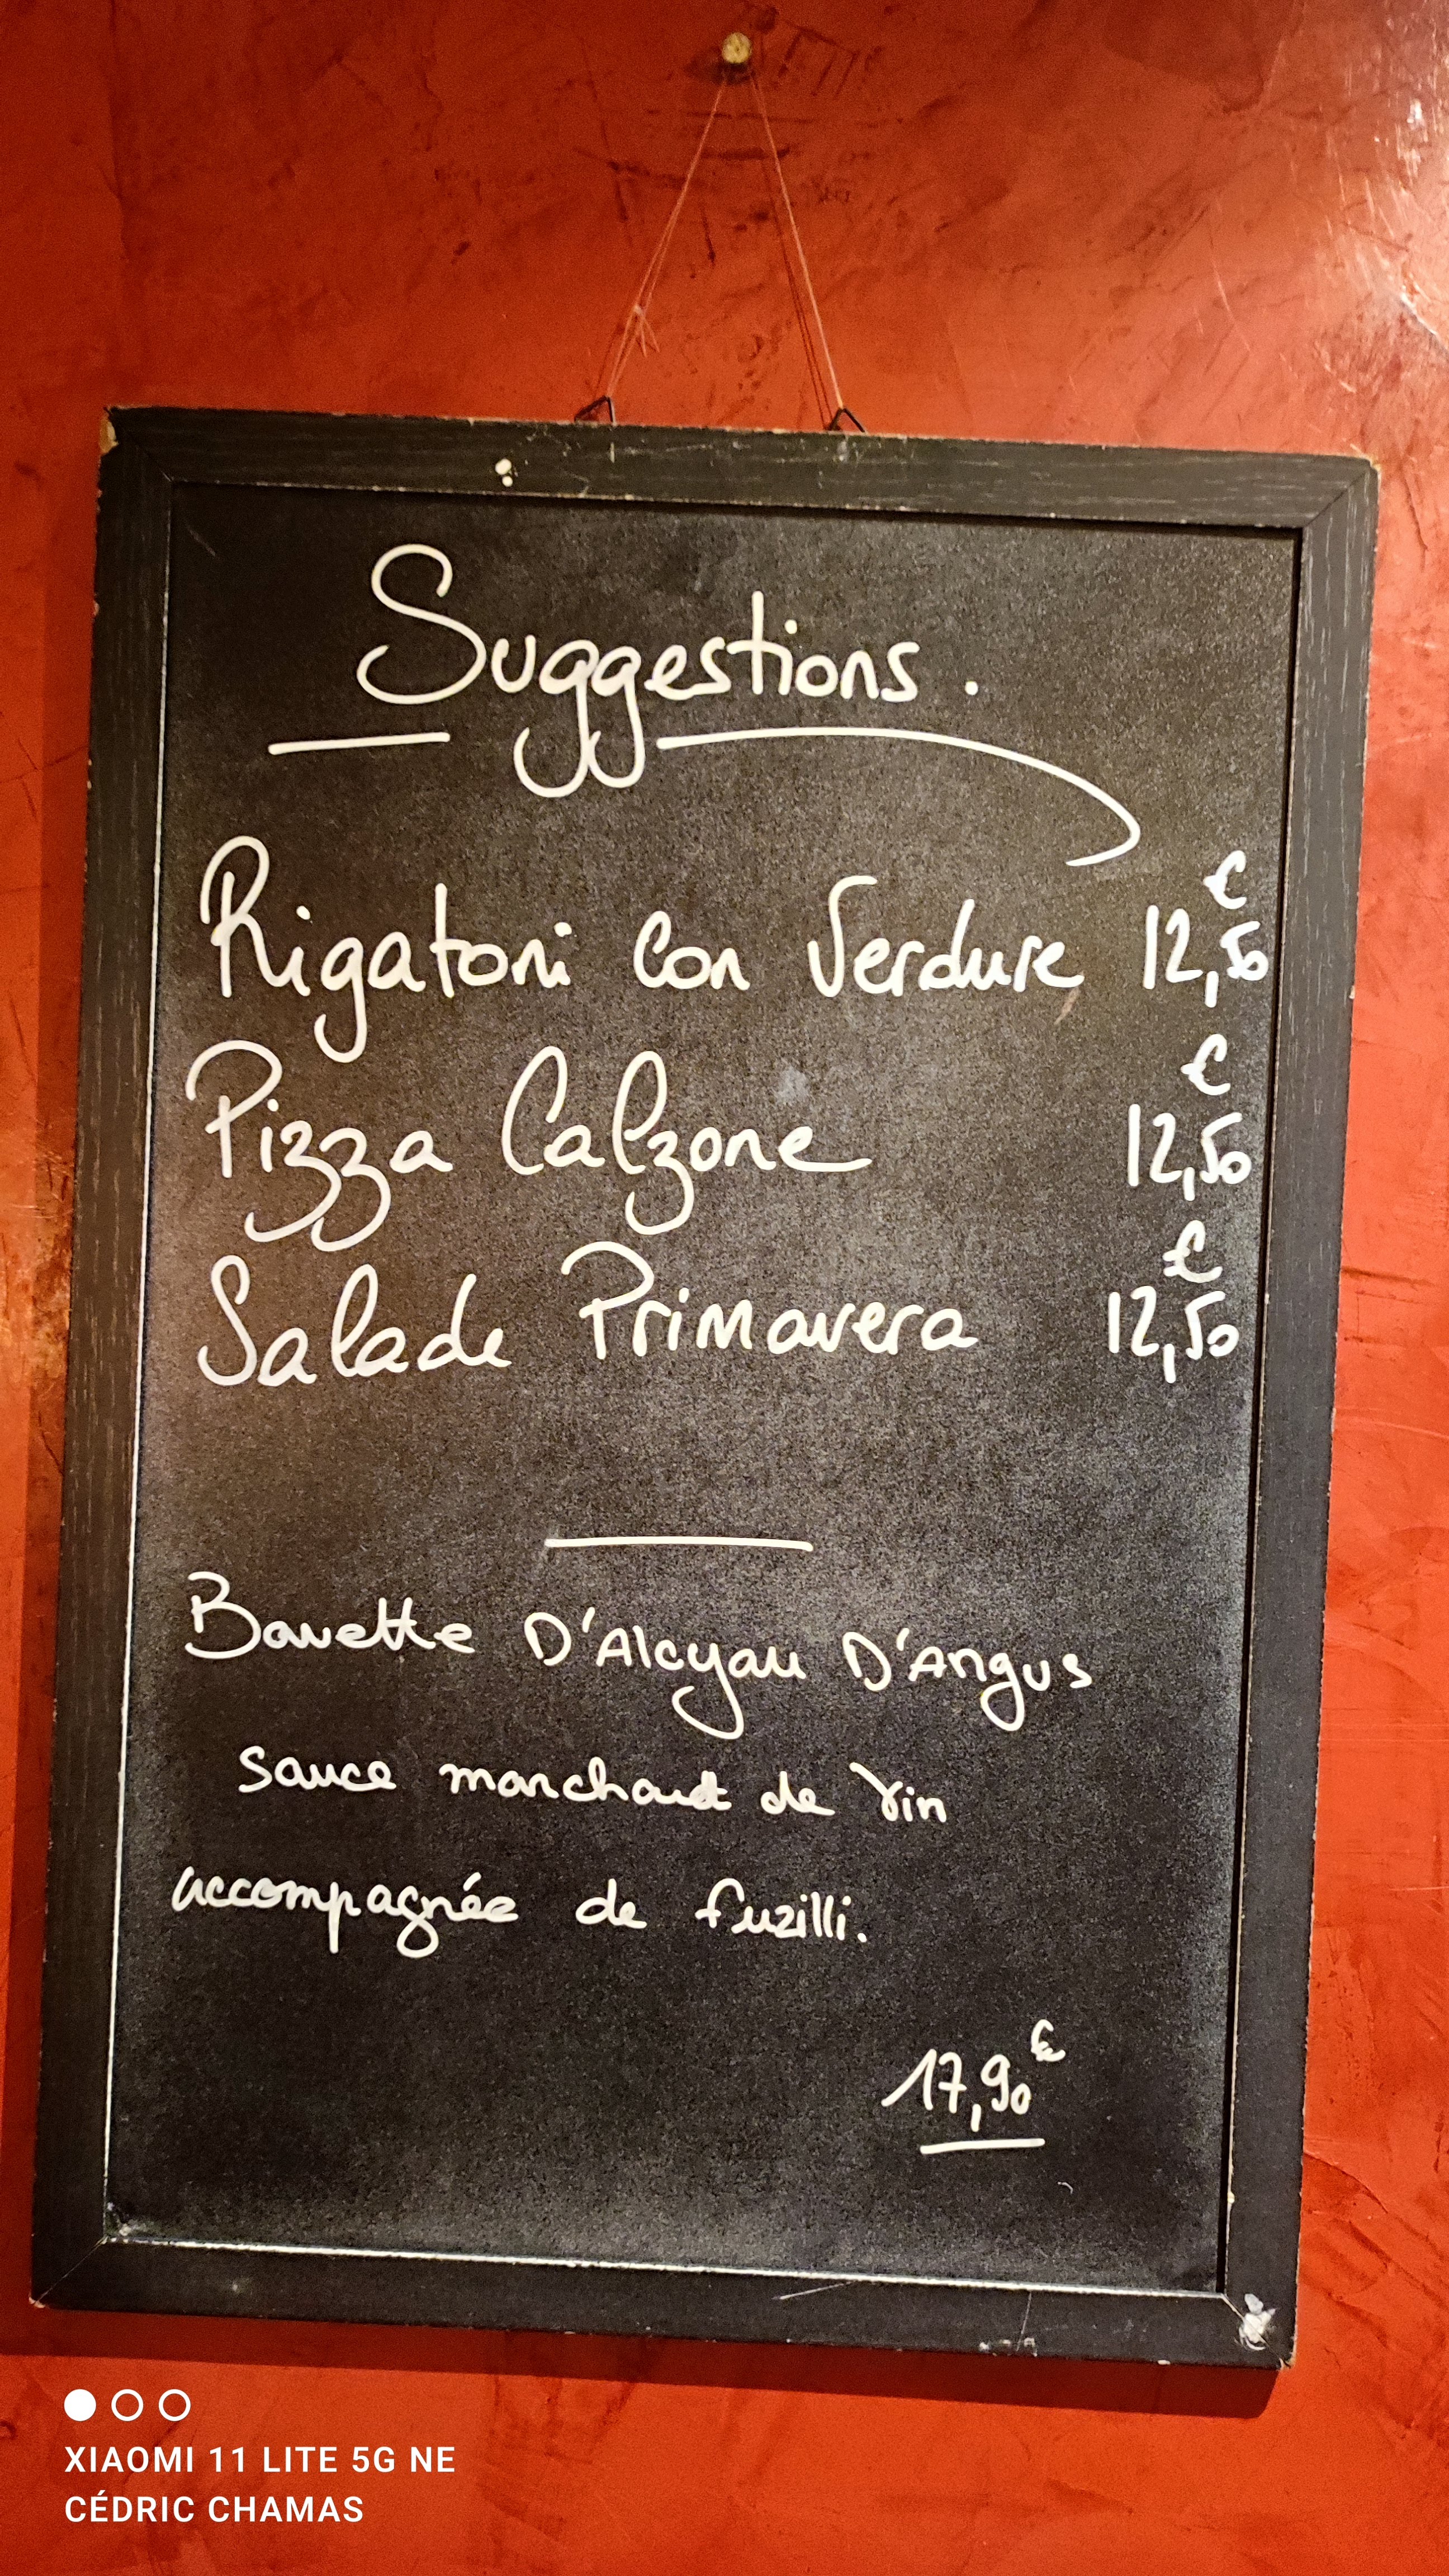 Suggestions.
Rigatoni Con Verdure 12,50 €
Pizza Calzone 12,50 €
Salade Primavera 12,50 €
Bavette D'Aloyau D'Angus
sauce marchand de Vin
accompagnée de fuzilli.
17,90 €
XIAOMI 11 LITE 5G NE
CÉDRIC CHAMAS